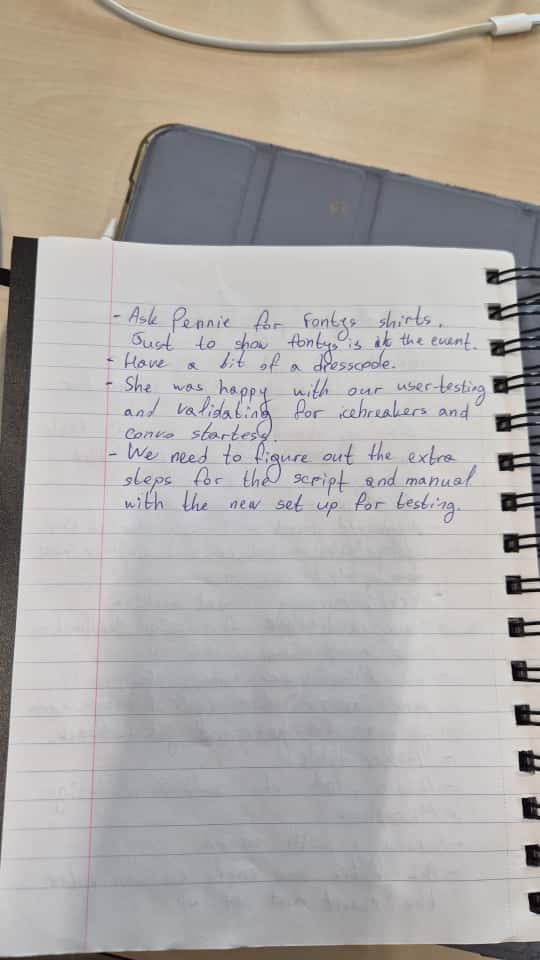 - Ask Pennie for Fontys shirts.
Just to show fontys is at the event.
- Have a bit of a dresscode.
- She was happy with our user-testing
and validating for icebreakers and
convo starters.
- We need to figure out the extra
steps for the script and manual
with the new set up for testing.